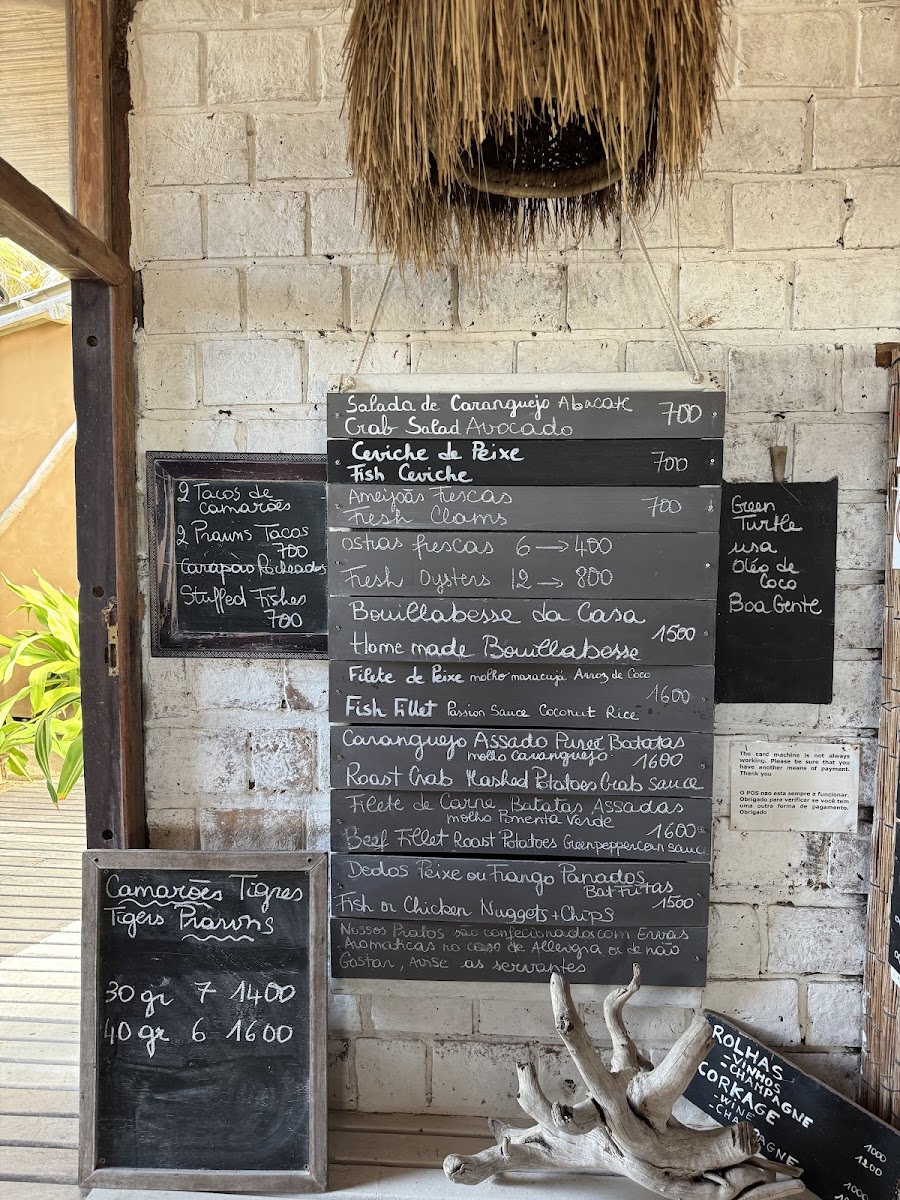 Salada de Caranguejo Abacate 700
Crab Salad Avocado
Ceviche de Peixe
Fish Ceviche 700
Ameijoas frescas
Fresh Clams 700
ostras frescas 6 → 400
Fresh Oysters 12 → 800
Bouillabesse da Casa
Home made Bouillabesse 1500
Filete de Peixe molho maracujá Arroz de Coco
1600
Fish Fillet Passion Sauce Coconut Rice
Caranguejo Assado Pureé Batatas
molho caranguejo 1600
Roast Crab Mashed Potatoes Crab sauce
Filete de Carne Batatas Assadas
molho Pimenta Verde 1600
Beef Fillet Roast Potatoes Greenpeppercorn sauce
Dedos Peixe ou Frango Panados
Bat Fritas
1500
Fish or Chicken Nuggets + Chips
Nossos Pratos são confecionados com Ervas
Aromaticas no caso de Allergia ou de não
Gostar, Avise as servantes
2 Tacos de
camarões
2 Prawns Tacos
700
Carapào Recheados
Stuffed Fishes
700
Green
Turtle
usa
Óleo de
Coco
Boa Gente
The card machine is not always
working. Please be sure that you
have another means of payment.
Thank you
O POS não esta sempre a funcionar.
Obrigado para verificar se você tem
uma outra forma de pagamento.
Obrigado
Camarões Tigres
Tigers Prawns
30 gr 7 1400
40 gr 6 1600
ROLHAS
- VINHOS
- CHAMPAGNE
CORKAGE
- WINE 1000
1200